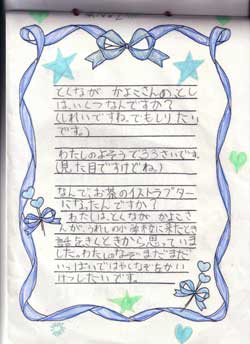 とくなが かよこさんの、とし
は、いくつなんですか？
(しれいですね。でもしりたい
です。)
わたしのよそうで33さいです。
(見た目ですけどね。)
なんで、お茶のイストラプター
になったんですか？
わたしは、とくなが かよこさ
んが、うれしの小学きに来たとき
をきくときから思っていま
した。わたしのなぞ まだまだ
いっぱいではやくなぞをかい
けつしたいです。